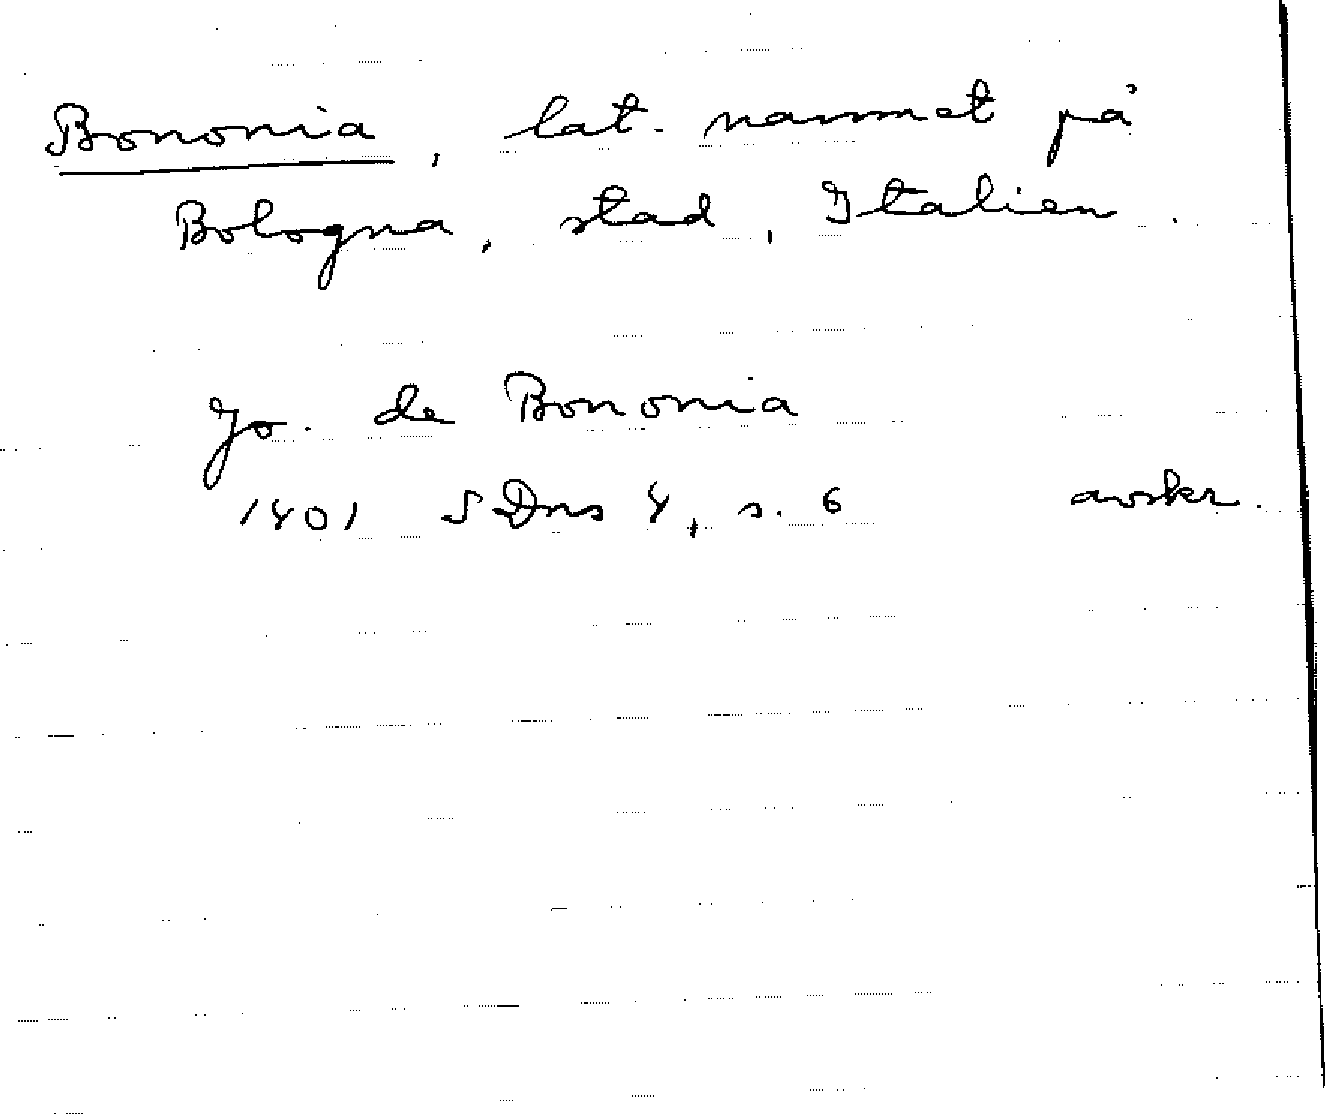 Bononia, lat. namnet på
Bologna, stad, Italien.
Jo. de Bononia
1401 SDns 4, s. 6 avskr.